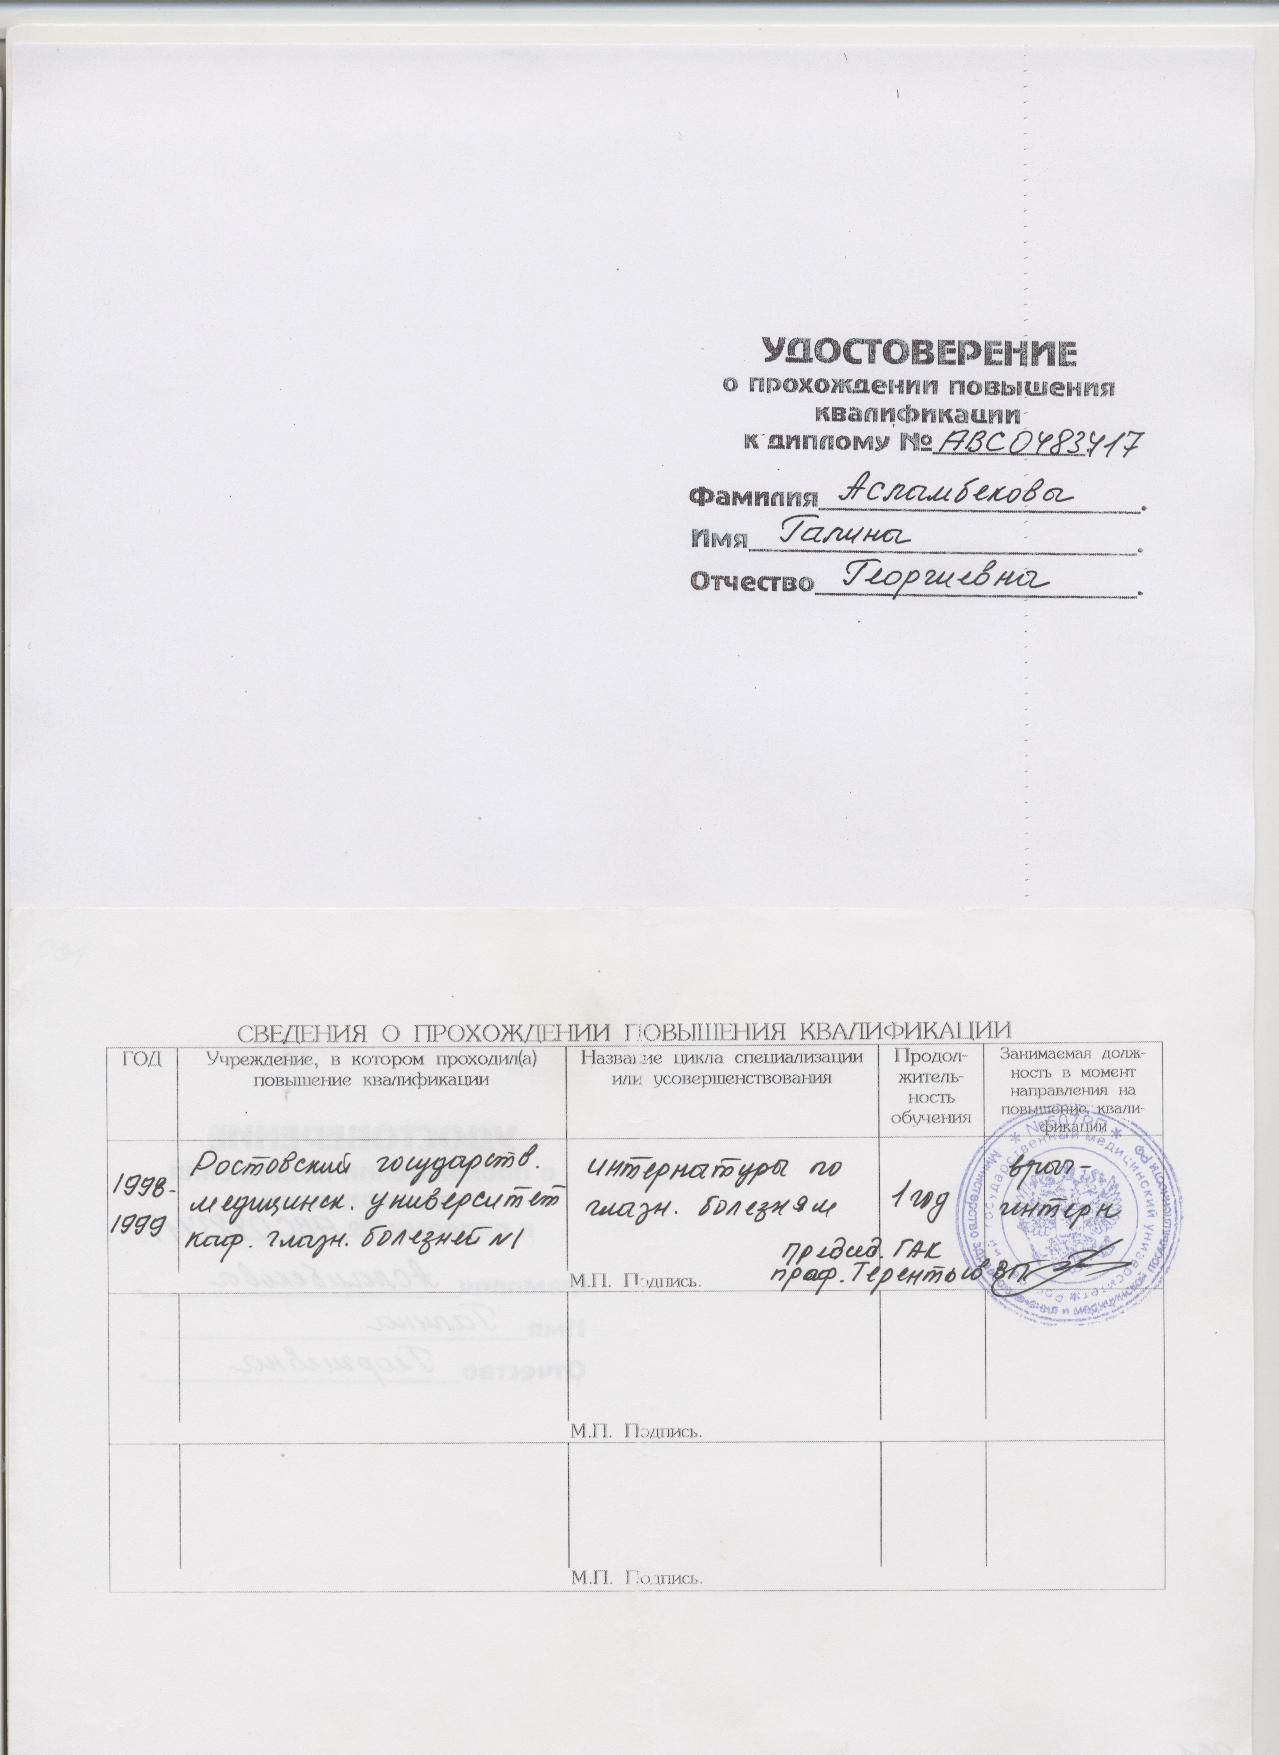 УДОСТОВЕРЕНИЕ
о прохождении повышения
квалификации
к диплому № АВС0483417
Фамилия Асламбекова
Имя Галина
Отчество Георгиевна
СВЕДЕНИЯ О ПРОХОЖДЕНИИ ПОВЫШЕНИЯ КВАЛИФИКАЦИИ
ГОД
Учреждение, в котором проходил(а)
повышение квалификации
Название цикла специализации
или усовершенствования
Продол-
житель-
ность
обучения
Занимаемая долж-
ность в момент
направления на
повышение, квали-
фикации
1998-
1999
Ростовский государств.
медицинск. университет
каф. глазн. болезней №1
интернатуры по
глазн. болезням
1 год
врач-
интерн
председ. ГАК
М.П. Подпись. проф. Терентьев
М.П. Подпись.
М.П. Подпись.